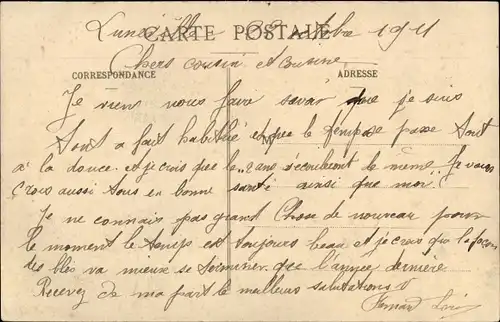 Lunéville octobre 1911
CARTE POSTALE
Chers cousin et cousine
CORRESPONDANCE
ADRESSE
Je viens vous faire savoir que je suis
M
tout a fait habitué et que le temp se passe tout
à la douce. et je crois que le 2 ans de même. Je vous
crois aussi tous en bonne santé ainsi que moi.
Je ne connais pas grand chose de nouveau pour
le moment le temps est toujours beau et je crois que la façon
des blés va mieux se terminer que l'année dernière
Recevez de ma part le meilleurs salutations
Fernand